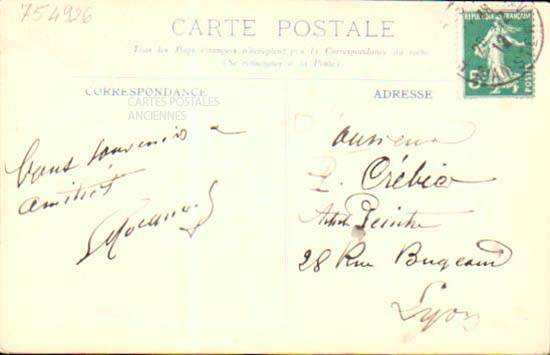 754926
CARTE POSTALE
Tous les Pays étrangers n'acceptent pas la Correspondance au recto
(Se renseigner à la Poste)
CORRESPONDANCE
CARTES POSTALES
ANCIENNES
ADRESSE
REPUBLIQUE FRANÇAISE
5
POSTES
Bons souvenirs
amitiés
Monsieur
Crébio
Artiste Peintre
28 Rue Bugeaud
Lyon